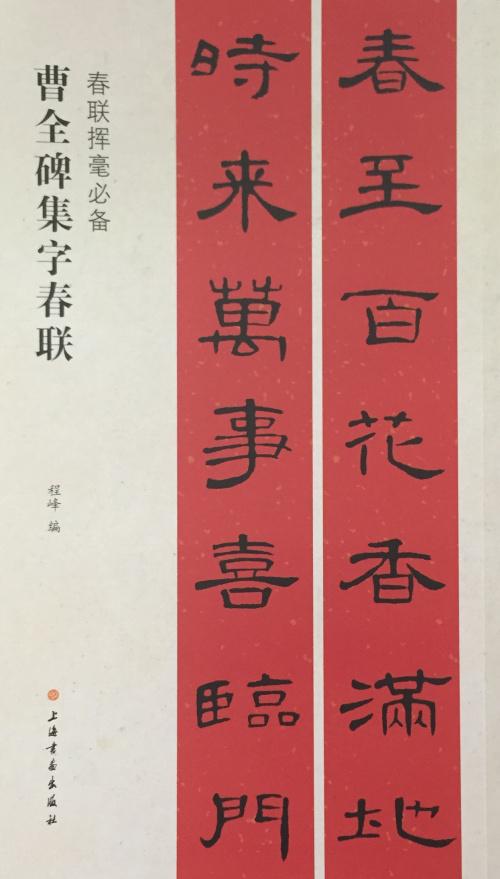 春至百花香滿地
時来萬事喜臨門
春联挥毫必备
曹全碑集字春联
程峰 编
上海书画出版社